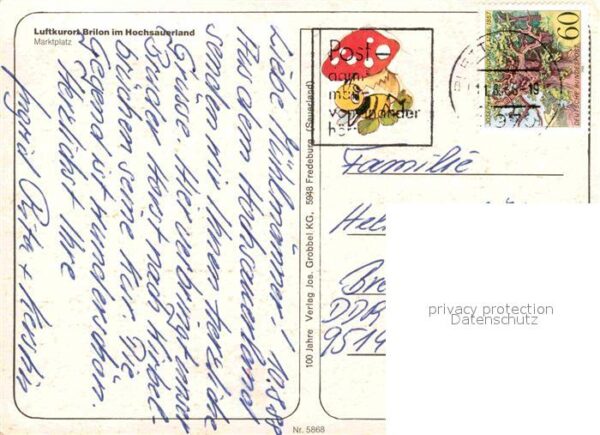 Luftkurort Brilon im Hochsauerland
Marktplatz
Liebe Mühlmänner! 10.8.88
Aus dem Hochsauerland
senden wir Ihnen herzliche
Grüße. Hier verbringt unser
Bruder Horst nach
seine Kur. Die
Gegend ist wunderschön.
Herzlichst Ihre
Ingrid Rita + Kerstin
100 Jahre Verlag Jos. Grobbel KG, 5948 Fredeburg (Sauerland)
Nr. 5868
Post
vonei­nander
60
DEUTSCHE BUNDESPOST
Familie
DDR
951
privacy protection
Datenschutz